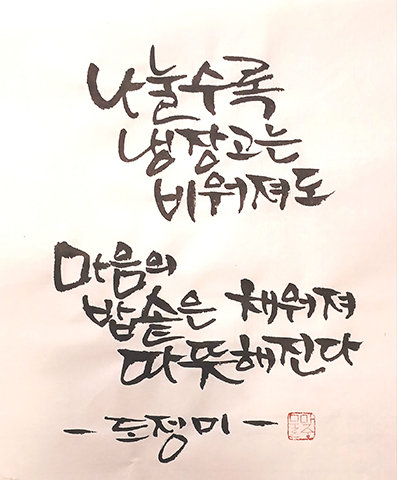 나눌수록
냉장고는
비워져도
마음의
밥솥은 채워져
따뜻해진다
- 도정미 -